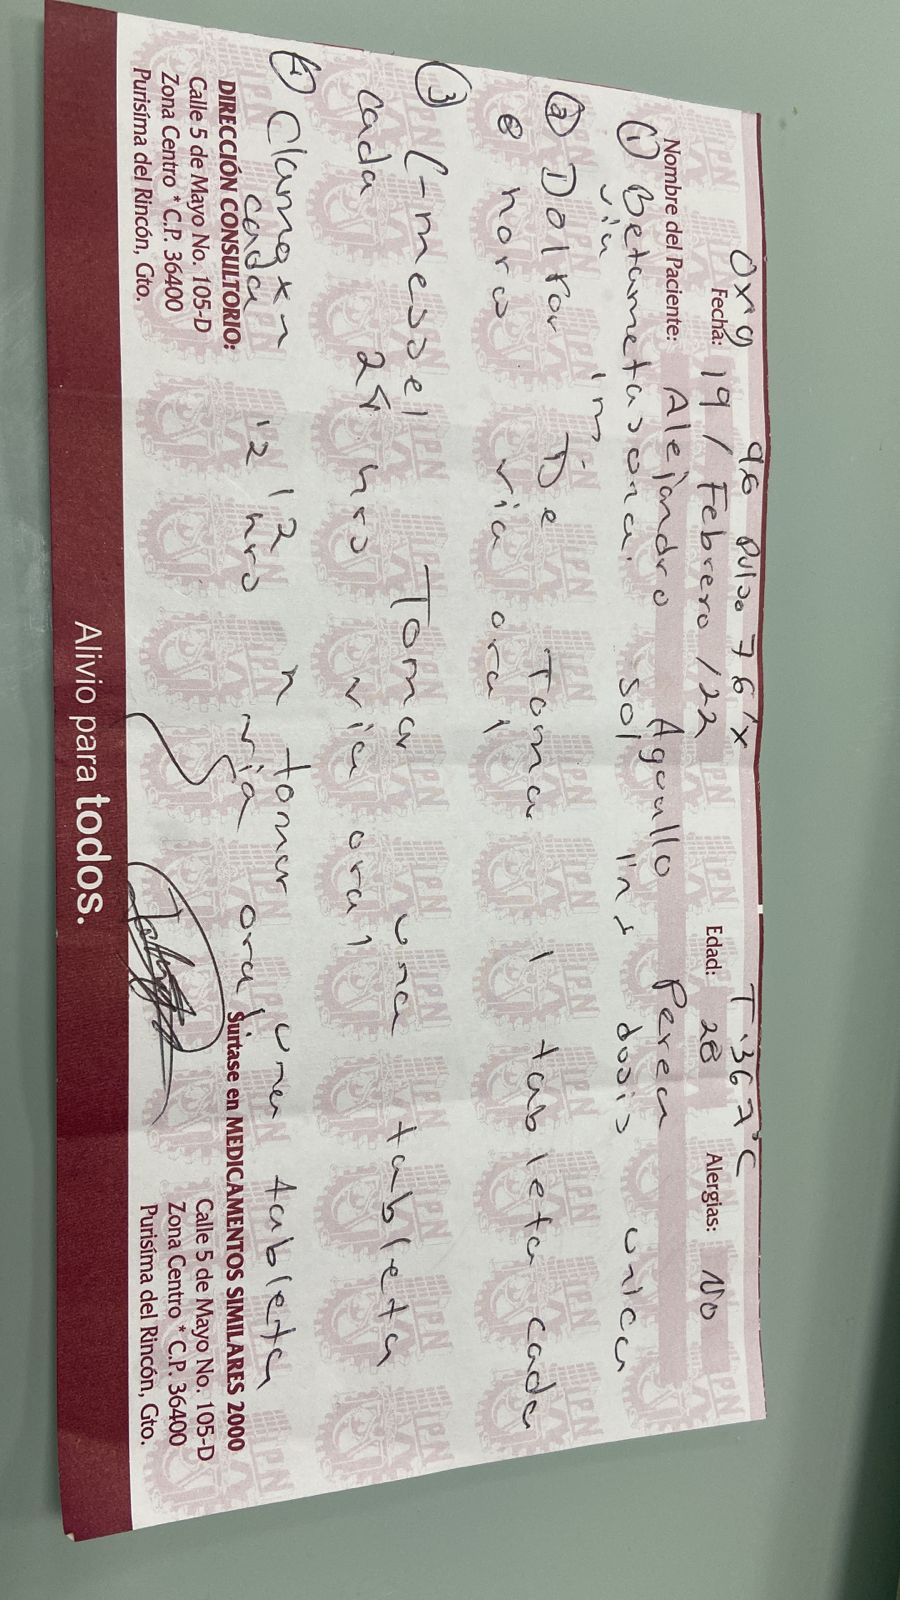 Oxg 96 Pulso 76 'x T.36.7°C
Fecha: 19 / Febrero / 22 Edad: 28 Alergias: No
Nombre del Paciente: Alejandro Aguallo Perea
① Betametasona. sol iny dosis unica
via im
② Dolror De Toma 1 tableta cada
8 horo via oral
③ Toma una tableta
cada 24 hrs via oral
④ Clamoxn 12 n tomar una tableta
cada 12 hrs via oral
DIRECCIÓN CONSULTORIO:
Calle 5 de Mayo No. 105-D
Zona Centro * C.P. 36400
Purisíma del Rincón, Gto.
Surtase en MEDICAMENTOS SIMILARES 2000
Calle 5 de Mayo No. 105-D
Zona Centro * C.P. 36400
Purisíma del Rincón, Gto.
Alivio para todos.